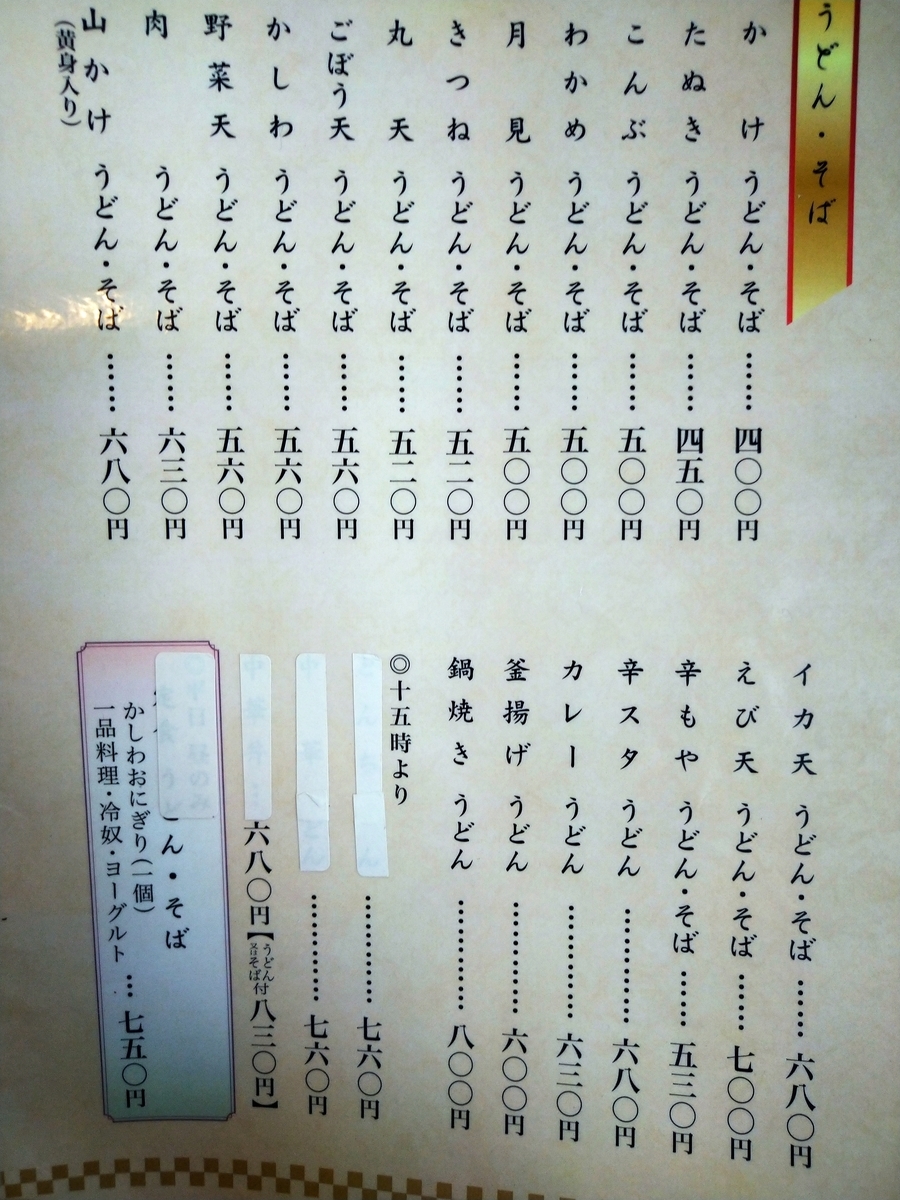 うどん・そば
かけ うどん・そば……四〇〇円
たぬき うどん・そば……四五〇円
こんぶ うどん・そば……五〇〇円
わかめ うどん・そば……五〇〇円
月見 うどん・そば……五〇〇円
きつね うどん・そば……五二〇円
丸天 うどん・そば……五二〇円
ごぼう天 うどん・そば……五六〇円
かしわ うどん・そば……五六〇円
野菜天 うどん・そば……五六〇円
肉 うどん・そば……六三〇円
山かけ うどん・そば……六八〇円
(黄身入り)
イカ天 うどん・そば……六八〇円
えび天 うどん・そば……七〇〇円
辛もや うどん・そば……五三〇円
辛スタ うどん…………六八〇円
カレー うどん…………六三〇円
釜揚げ うどん…………六〇〇円
鍋焼き うどん…………八〇〇円
◎十五時より
…………七六〇円
…………七六〇円
中華丼…六八〇円【うどん又はそば付八三〇円】
◎平日 昼のみ
定食 うどん・そば
かしわおにぎり(一個)
一品料理・冷奴・ヨーグルト…七五〇円